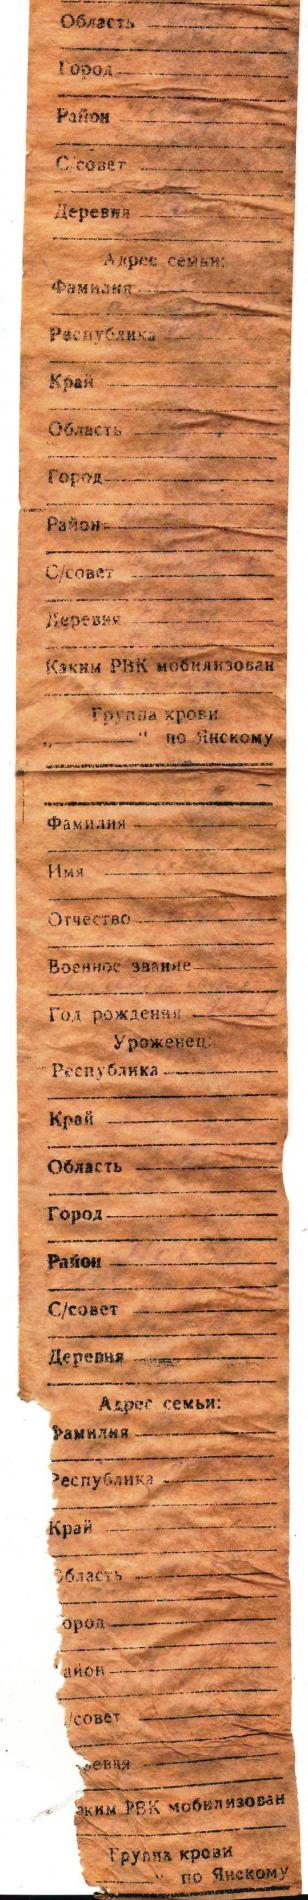 Область
Город
Район
С/совет
Деревня
Адрес семьи:
Фамилия
Республика
Край
Область
Город
Район
С/совет
Деревня
Каким РВК мобилизован
Группа крови
„ “ по Янскому
Фамилия
Имя
Отчество
Военное звание
Год рождения
Уроженец:
Республика
Край
Область
Город
Район
С/совет
Деревня
Адрес семьи:
Фамилия
Республика
Край
бласть
ород
айон
/совет
евня
аким РВК мобилизован
Группа крови
“ по Янскому